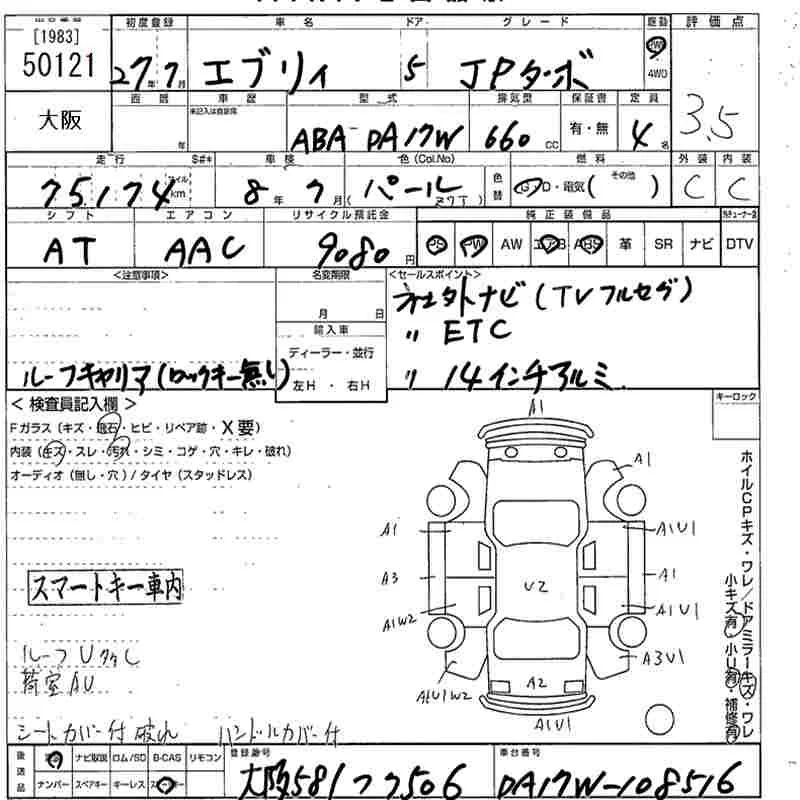 [1983]
50121
大阪
初度登録 車名 ドア グレード 駆動 評価点
27年7月 エブリィ 5 JPターボ 2WD 4WD 3.5
車歴 型式 排気量 保証書 定員
ABA-DA17W 660cc 有・無 4名
走行 S#* 車検 色(Col.No) 燃料 その他 外装 内装
75174 マイルkm 8年7月 パール Z7T 色替 G・D・電気( ) C C
シフト エアコン リサイクル預託金 純正装備品
AT AAC 9080円 PS PW AW エアB ABS 革 SR ナビ DTV
<注意事項> 名変期限 <セールスポイント>
月 日
社外ナビ(TVフルセグ)
〃 ETC
輸入車
ディーラー・並行
左H・右H
ルーフキャリア(ロックキー無し)
〃 14インチアルミ
<検査員記入欄>
キーロック
Fガラス(キズ・飛石・ヒビ・リペア跡・X要)
内装(キズ・スレ・汚れ・シミ・コゲ・穴・キレ・破れ)
オーディオ(無し・穴)/タイヤ(スタッドレス)
スマートキー車内
ルーフUタタし
荷室AU
シートカバー付 破れ ハンドルカバー付
A1
A1
A1
A1U1
A3
U2
A1
A1W2
A1U1
A3U1
A1U1W2
A2
A1U1
ホイルCPキズ・ワレ/ドアミラーキズ・ワレ
小キズ有・小U有・補修有
後送品 ナビ取説 ロム/SD B-CAS リモコン 登録番号 車台番号
ナンバー スペアキー キーレス
大阪581フ7506 DA17W-108516